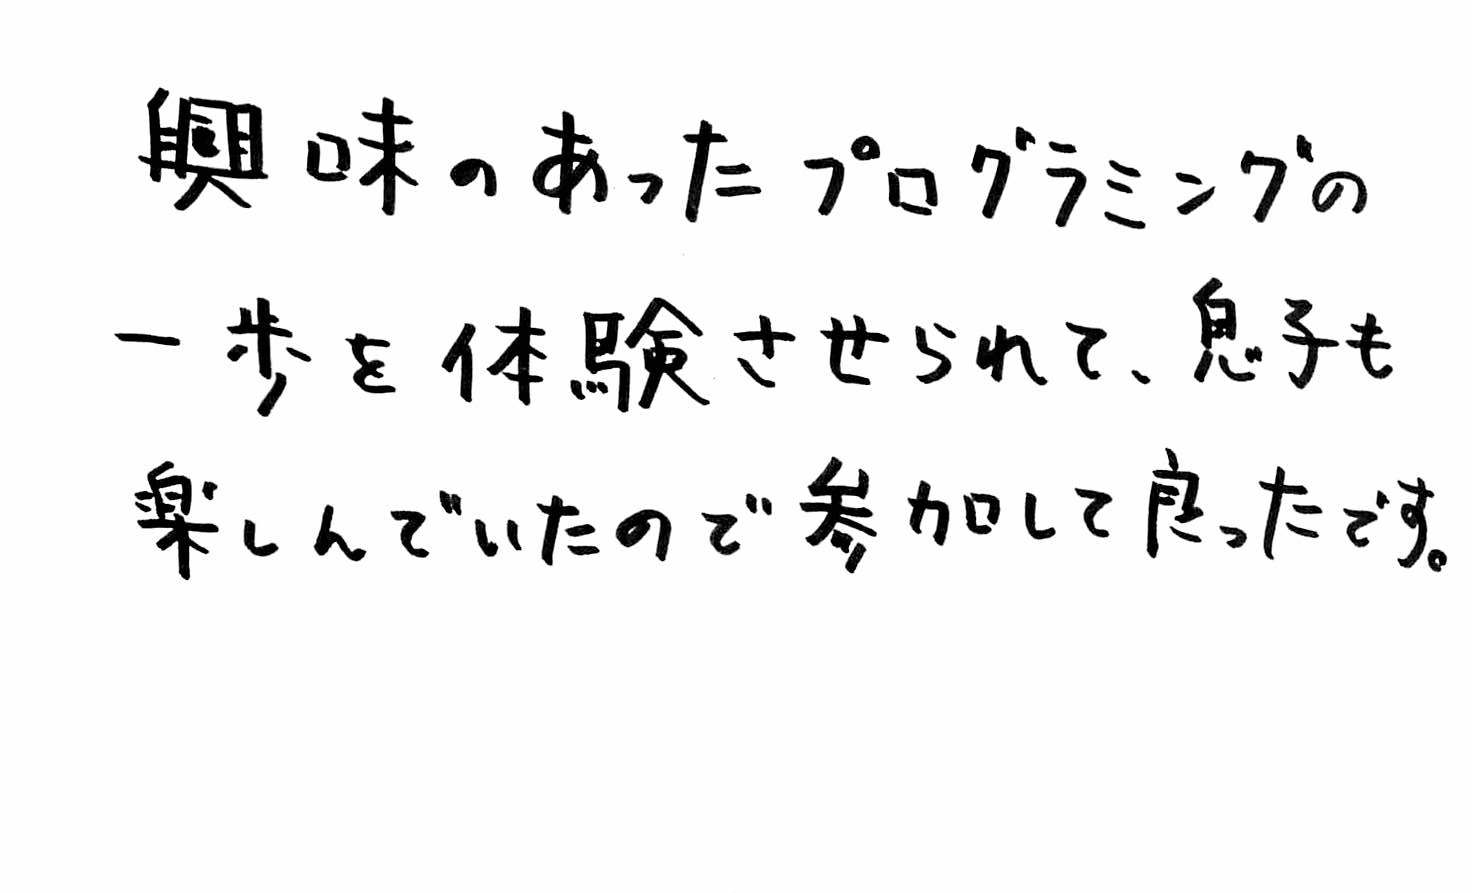 興味のあったプログラミングの
一歩を体験させられて、息子も
楽しんでいたので参加して良ったです。